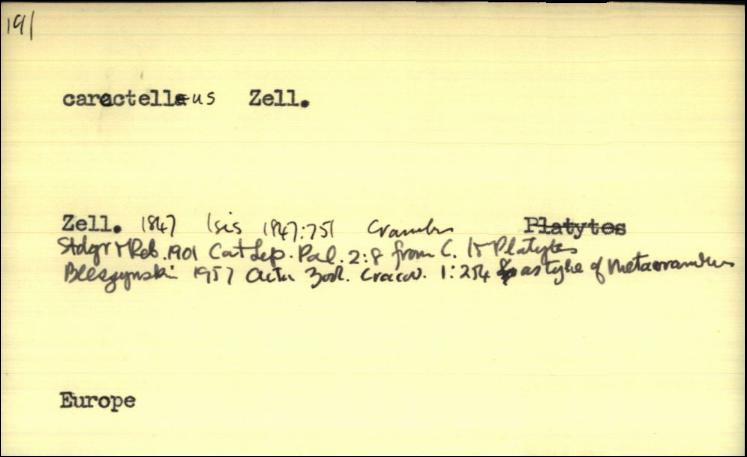 191
carectellaus Zell.
Zell. 1847 Isis 1847:751 Crambus Platytes
Stdgr & Reb. 1901 Cat Lep. Pal. 2:8 from C. to Platytes
Bleszynski 1957 Acta Zool. Cracov. 1:254 as type of Metacrambus
Europe